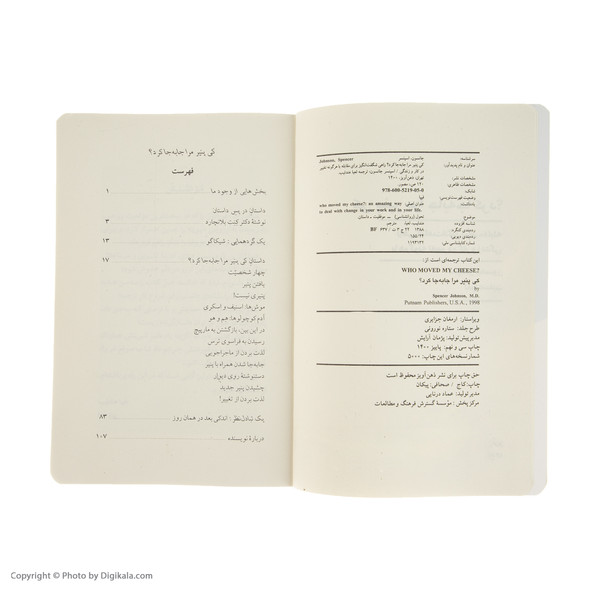 سرشناسه جانسون، اسپنسر Johnson, Spencer
عنوان و نام پدیدآور: کی پنیر مرا جابه‌جا کرد؟
در کار و زندگی / اسپنسر جانسون؛
مشخصات نشر: تهران: ذهن‌آویز، ۱۴۰۰
مشخصات ظاهری: ۱۲۰ص: مصور.
شابک: 978-600-5219-05-0
وضعیت فهرست‌نویسی: فیپا
یادداشت: عنوان اصلی: who moved my cheese?: an amazing way
to deal with change in your work and in your life.
موضوع: تحول (روانشناسی) -- موفقیت - داستان
شناسه افزوده:
رده‌بندی کنگره: ۱۳۸۸ BF ۶۳۷
رده‌بندی دیویی: ۱۵۸/۲۴
شماره کتابشناسی ملی:
این کتاب ترجمه‌ای است از:
WHO MOVED MY CHEESE?
کی پنیر مرا جابه‌جا کرد؟
by
Spencer Johnson, M.D.
Putnam Publishers, U.S.A., 1998
ویراستار: ارمغان جزایری
طرح جلد: ستاره نوروئی
مدیر پیش‌تولید: پژمان آرایش
چاپ سی و نهم: پاییز ۱۴۰۰
شمار نسخه‌های این چاپ: ۵۰۰۰
حق چاپ برای نشر ذهن‌آویز محفوظ است
چاپ: کاج / صحافی: پیکان
مدیر تولید: عماد درنایی
مرکز پخش: مؤسسهٔ گسترش فرهنگ و مطالعات
کی پنیر مرا جابه‌جا کرد؟
فهرست
بخش‌هایی از وجود ما ۱
داستان در پس داستان
نوشتهٔ دکتر کنت بلانچارد ۳
یک گردهمایی: شیکاگو ۱۳
داستان کی پنیر مرا جابه‌جا کرد؟ ۱۷
چهار شخصیت
یافتن پنیر
پنیری نیست!
موش‌ها: اسنیف و اسکری
آدم کوچولوها: هم و هو
در این بین، بازگشتن به مارپیچ
رسیدن به فراسوی ترس
لذت بردن از ماجراجویی
جابه‌جا شدن همراه با پنیر
دستنوشتهٔ روی دیوار
چشیدن پنیر جدید
لذت بردن از تغییر!
یک تبادل‌نظر: اندکی بعد در همان روز ۸۳
دربارهٔ نویسنده ۱۰۷
Copyright © Photo by Digikala.com